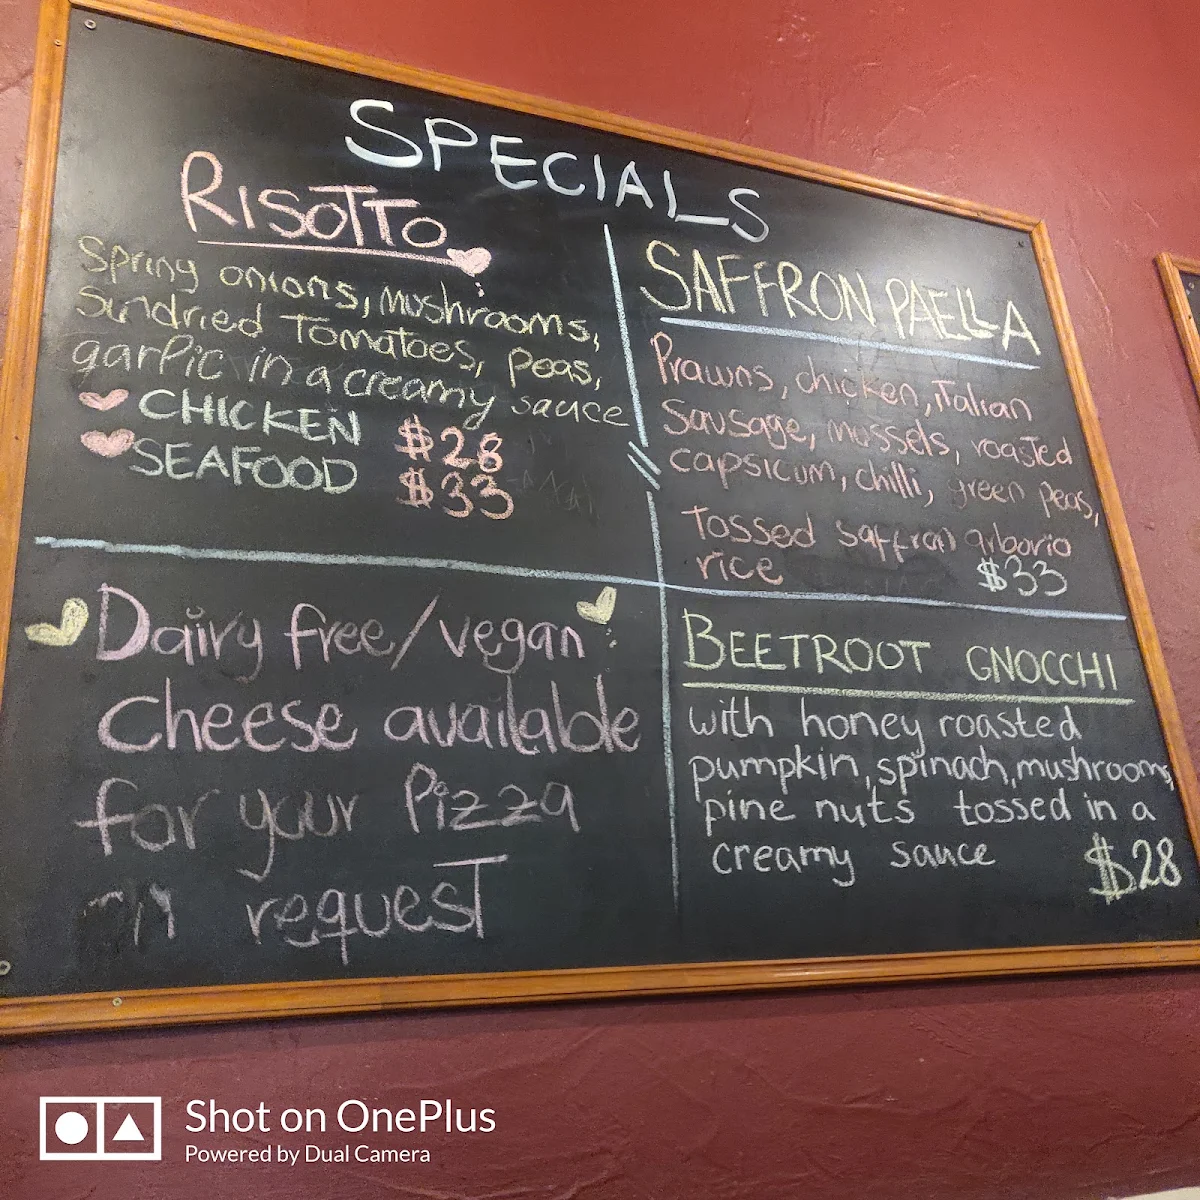 SPECIALS
RISOTTO
Spring onions, mushrooms,
Sundried Tomatoes, peas,
garlic in a creamy sauce
CHICKEN $28
SEAFOOD $33
SAFFRON PAELLA
Prawns, chicken, iTalian
Sausage, mussels, roasted
capsicum, chilli, green peas,
Tossed saffron arborio
rice $33
Dairy free/vegan
Cheese available
for your Pizza
request
BEETROOT GNOCCHI
with honey roasted
pumpkin, spinach, mushrooms,
pine nuts tossed in a
creamy sauce $28
Shot on OnePlus
Powered by Dual Camera